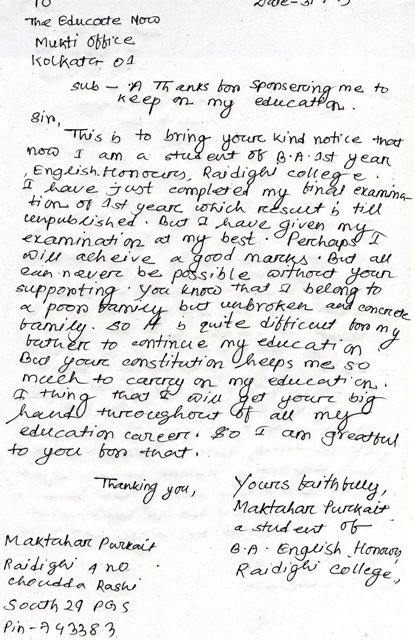 To
Date-31
The Educate Now
Mukti Office
Kolkata 01
Sub - A Thanks for sponsering me to
keep on my education.
Sir,
This is to bring your kind notice that
now I am a student of B.A. 1st year
, English Honours, Raidighi college.
I have just completed my final examina
tion of 1st year which result is till
unpublished. But I have given my
examination at my best. Perhaps I
will acheive a good marks. But all
can never be possible without your
supporting. You know that I belong to
a poor family but unbroken and concrete
family. So it is quite difficult for my
father to continue my education.
But your constitution helps me so
much to carry on my education.
I thing that I will get your big
hand throughout of all my
education career. So I am greatful
to you for that.
Thanking you,
Yours faithfully,
Maktahar Purkait
a student of
B.A. English Honours
Raidighi college,
Maktahar Purkait
Raidighi 4 no
Choudda Rashi
South 24 PGS
Pin-743383